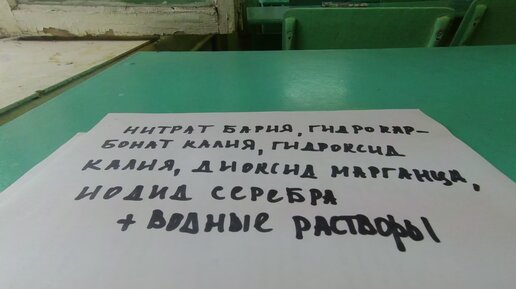 НИТРАТ БАРИЯ, ГИДРОКАР-
БОНАТ КАЛИЯ, ГИДРОКСИД
КАЛИЯ, ДИОКСИД МАРГАНЦА,
ИОДИД СЕРЕБРА
+ ВОДНЫЕ РАСТВОРЫ